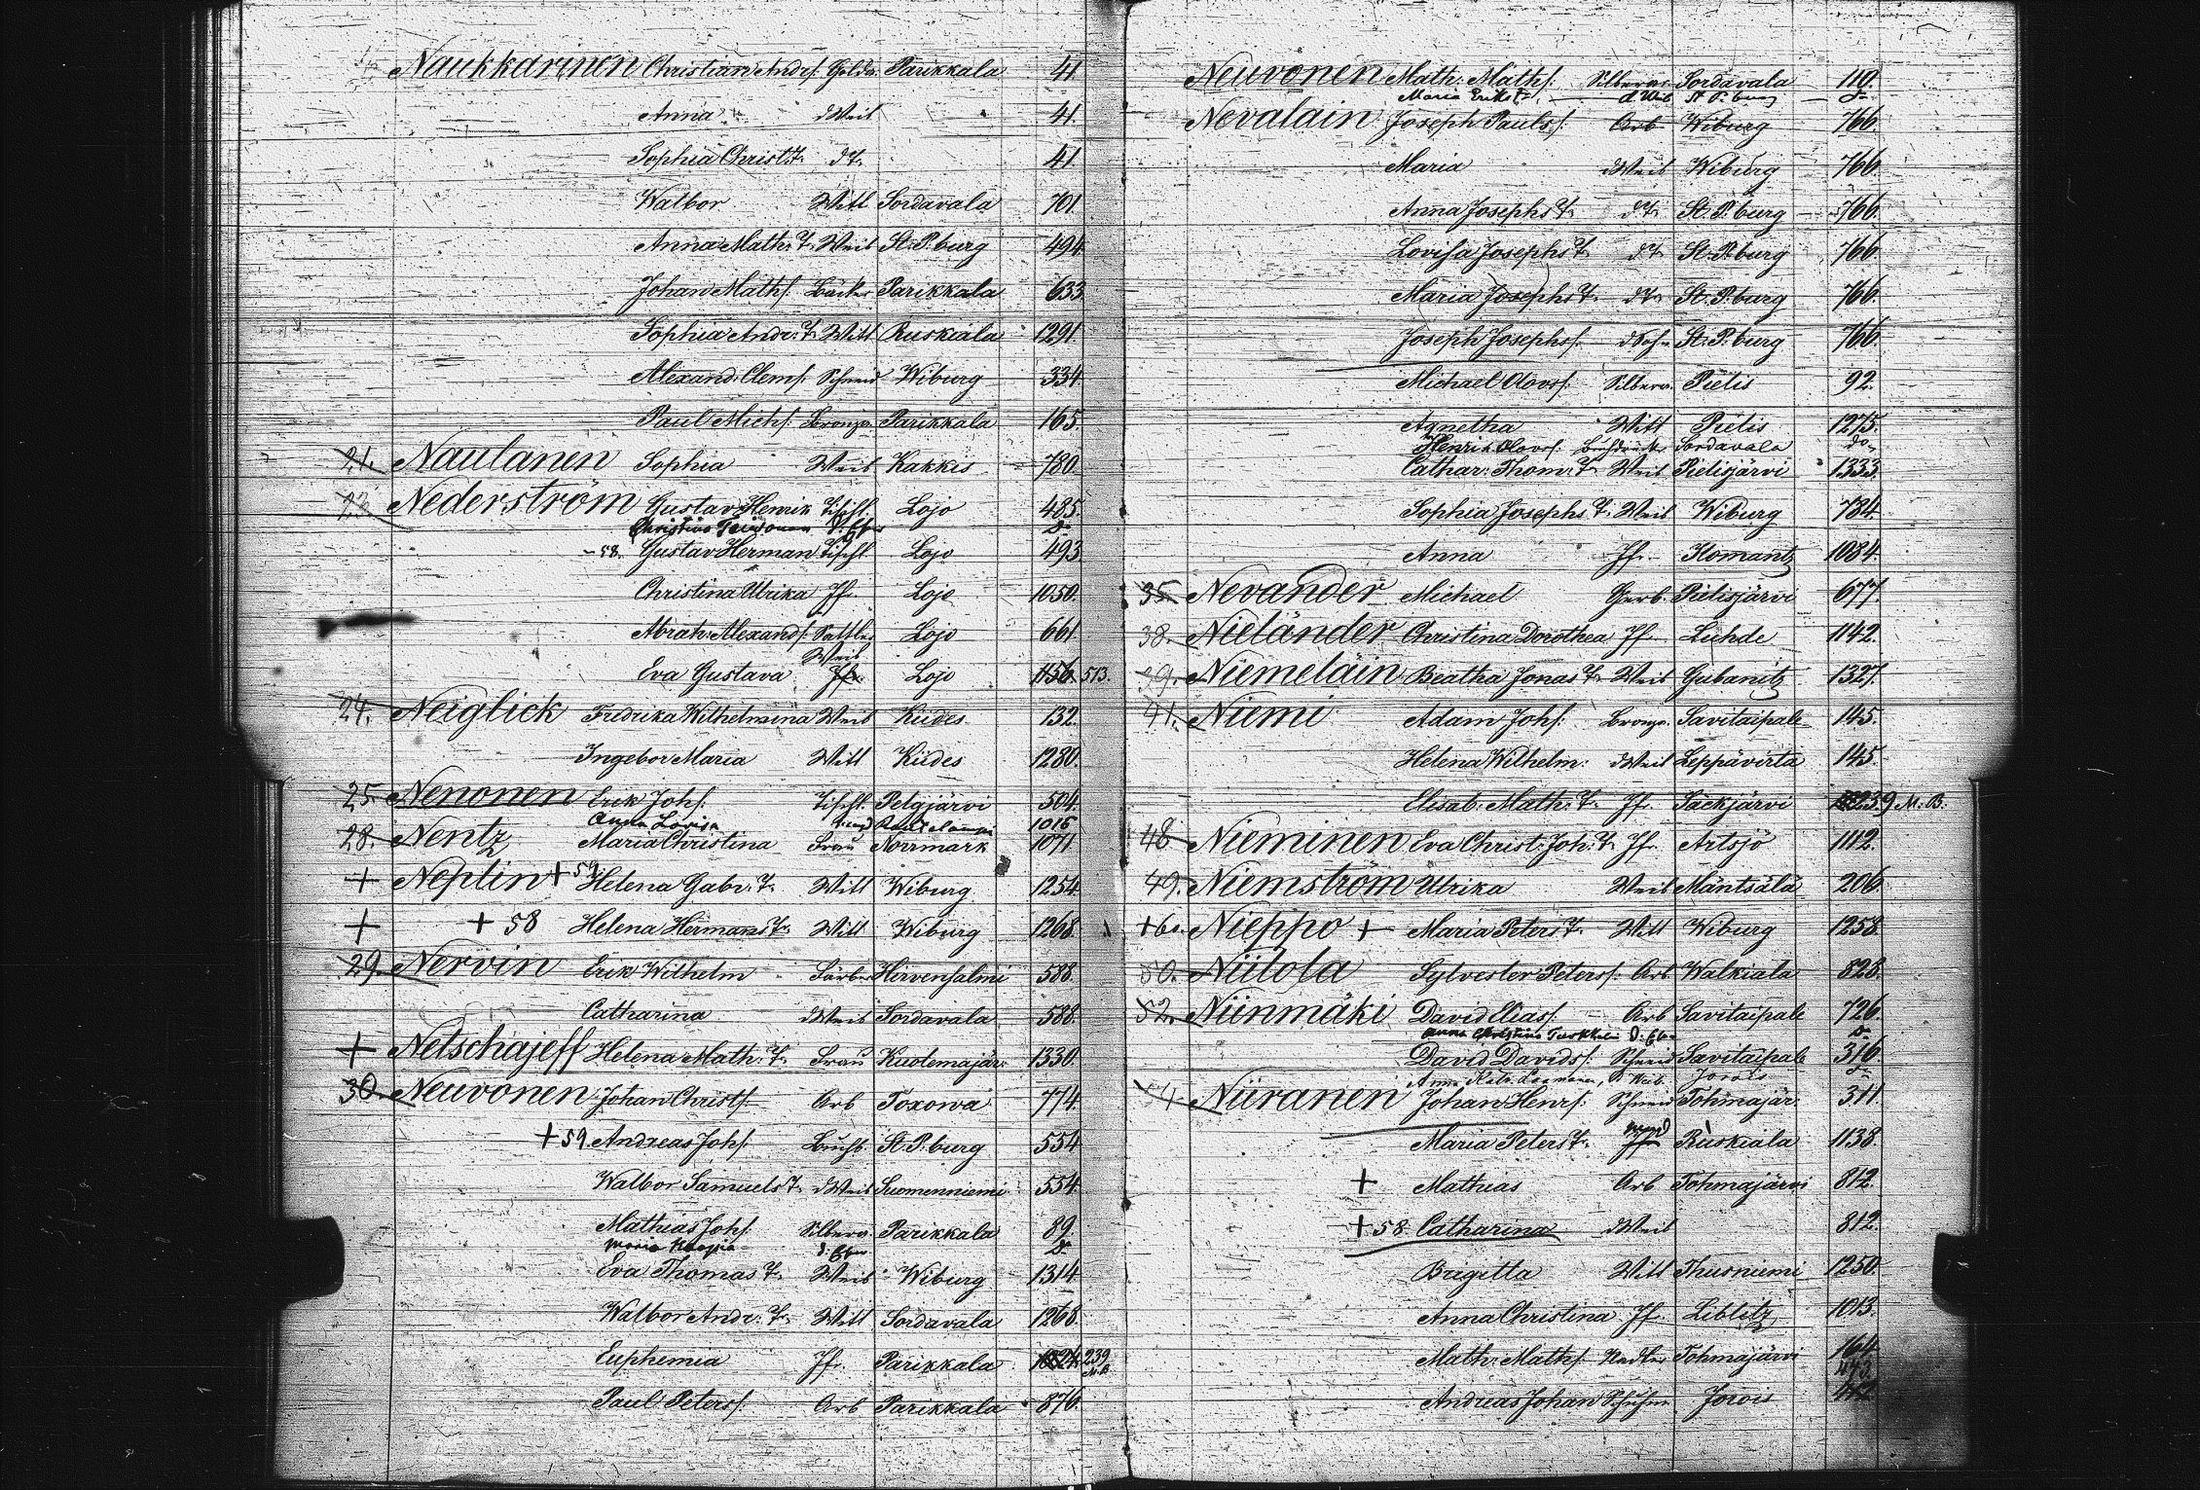 Naukkarinen Christian Andrs. Golda. Parikkala 41
Anna dWeib 41
Sophia Christ: T. dT. 41
Walbor Witt Sordavala 701
Anna Math. T. Weib St. P.burg 494
Johan Maths. Bäcker Parikkala 633
Sophia Andr. T. Witt Ruskiala 1291
Alexand. Clems. Schneid Wiburg 334
Paul Michs. Bronza. Parikkala 165
21. Naulanen Sophia Weib Kakkis 780
23. Nederström Gustav Henrik Tischl. Lojo 485.
Christina D.
- 58. Gustav Herman Tischl. Lojo 493
Christina Ulrika Jf. Lojo 1050.
Abrah: Alexands. Sattler Lojo 661
Weib
Eva Gustava Jfr. Lojo 1156. 513.
24. Neiglick Fredrika Wilhelmina Weib Kides 132.
Ingebor Maria Witt Kides 1280.
25. Nenonen Erik Johs. Tischl. Pelgjärvi 504.
Anna Lovisa 1016
28. Nentz Maria Christina Frau Norrmark 1071
+ Neplin + 59 Helena Gabr. T. Witt Wiburg 1254
+ + 58 Helena Hermans T. Witt Wiburg 1268
29. Nervin Erik Wilhelm Färber Hirvensalmi 588.
Catharina dWeib Sordavala 588.
+ Netschajeff Helena Math. T. Frau Kuolemajär: 1330.
30. Neuvonen Johan Christs. Arb Toxowa 774.
+ 59 Andreas Johs. Buchb. St. P.burg 554
Walbor Samuels T. dWeib Suomenniemi 554
Mathias Johs. Silbera. Parikkala 89.
Maria
Eva Thomas T. Weib Wiburg 1314
Walbor Andr. T. Witt Sordavala 1268.
Euphemia Jf. Parikkala 1024. 239 M.B.
Paul Peters. Arb Parikkala 876.
Neuvonen Math: Maths. Silberar Sordavala 110.
Maria Eriks T. d Weib St P.burg do
Nevalain Joseph Pauls. Arb Wiburg 766.
Maria dWeib Wiburg 766.
Anna Josephs T. dT. St. P.burg 766.
Lovisa Josephs T. dT. St. P.burg 766.
Maria Josephs T. dT. St. P.burg 766
Joseph Josephs. dSohn St. P.burg 766
Michael Olovs. Silbera. Pielis 92.
Agnetha Witt Pielis 1275.
Henrik Olovs. Sordavala do
Cathar: Thom. T. Weib Pielisjärvi 1333
Sophia Josephs T. Weib Wiburg 784.
Anna Jf. Ilomantz 1084
35. Nevander Michael Gerb. Pielisjärvi 677.
38. Nieländer Christina Dorothea Jf. Luhde 1142.
39. Niemeläin Beatha Jonas T. Weib Gubanitz 1327.
41. Niemi Adam Johs. Bronza. Savitaipale 145.
Helena Wilhelm: dWeib Leppävirta 145.
Elisab. Math. T. Jf. Säckjärvi 239 M.B.
48 Nieminen Eva Christ: Joh. T. Jf. Artsjö 1112.
49. Niemström Ulrika Weib Mäntsälä 206
+ 60. Nieppo + Maria Peters T. Witt Wiburg 1258.
50. Niilola Sylvester Peters. Arb Walkiala 828.
52. Niinmäki David Elias. Arb Savitaipale 726.
Anna Christina
David Davids. Schneid Savitaipale 316.
Anna Jorois
54. Niiranen Johan Henrs. Schneid Tohmajär. 311.
Maria Peters T. Ruskiala 1138.
+ Mathias Arb Tohmajärvi 812.
+ 58 Catharina dWeib 812.
Brigitta Witt Thusniemi 1250.
Anna Christina Jf. Liblitz 1013.
Math: Maths. Nadler Tohmajärvi 164
473.
Andreas Johan Schuhm Jorois